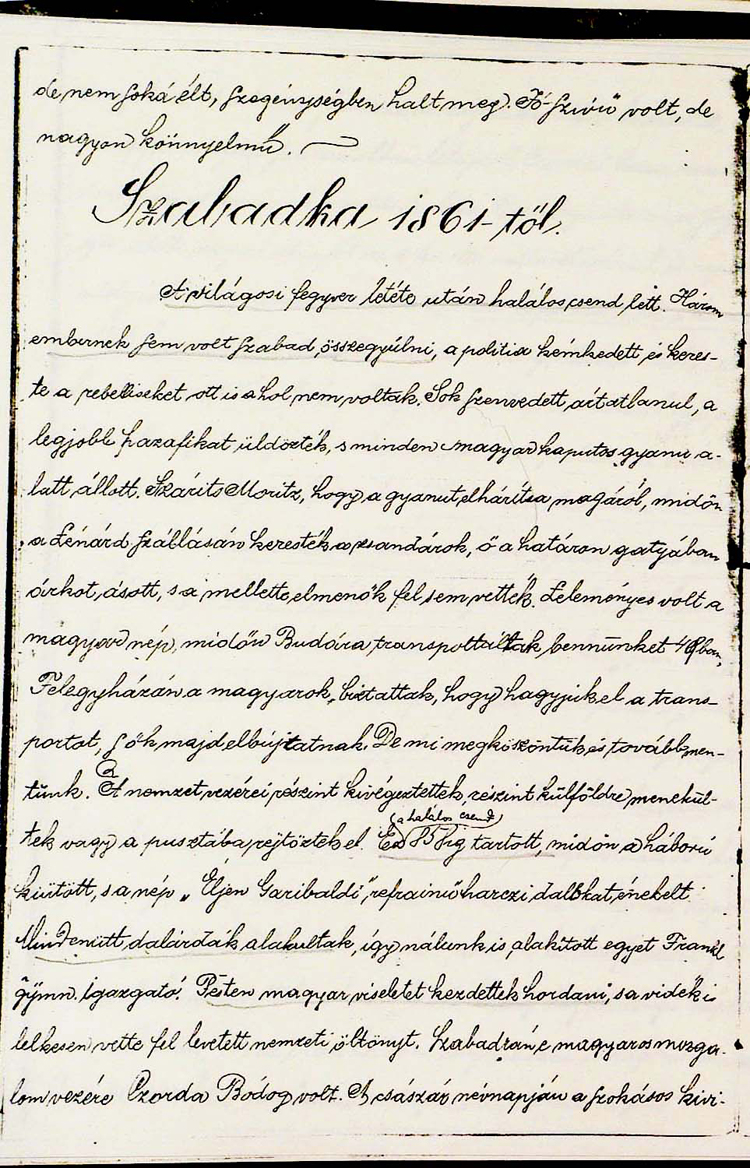 de nem soká élt, szegénységben halt meg. Jó szívű volt, de
nagyon könnyelmű.
Szabadka 1861-től.
A világosi fegyver letéte után halálos csend lett. Három
embernek sem volt szabad összegyűlni, a politia kémkedett, és keres-
te a rebelliseket ott is ahol nem voltak. Sok szenvedett ártatlanul, a
legjobb hazafikat üldözték, s minden magyar kaputos gyanu a-
latt állott. Szárits Moritz, hogy a gyanut elhárítsa magáról, midőn
a Lénárd szállásán keresték a zsandárok, ő a határon gatyában
árkot ásott, s a mellette elmenők fel sem vették. Leleményes volt a
magyar nép, midőn Budára transpoltáltak bennünket 49ben,
Felegyházán a magyarok biztattak, hogy hagyjuk el a trans-
portot, s ők majd elbújtatnak. De mi megköszöntük és tovább men-
tünk. A nemzet vezérei részint kivégeztettek, részint külföldre menekül-
tek vagy a pusztába rejtőztek el. Ez (a halálos csend) 59ig tartott, midőn a háború
kiütött, s a nép „Éljen Garibaldi" refrainű harczi dalokat énekelt.
Mindenütt dalárdák alakultak, így nálunk is, alakított egyet Frankl
gymn. igazgató. Pesten magyar viseletet kezdettek hordani, s a vidék is
lelkesen vette fel levetett nemzeti öltönyt. Szabadkán e magyaros mozga-
lom vezére Czorda Bódog volt. A császár névnapján a szokásos kivi-